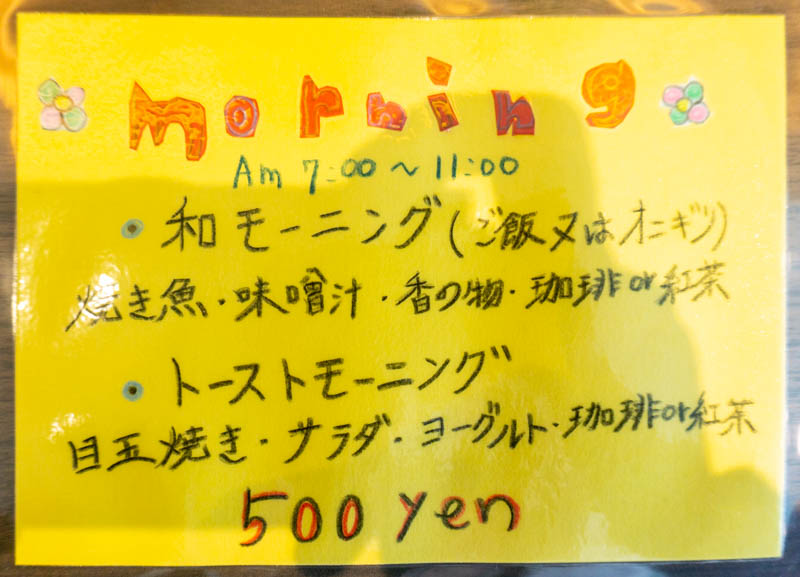 morning
Am 7:00〜11:00
・和モーニング(ご飯又はオニギリ)
焼き魚・味噌汁・香の物・珈琲or紅茶
・トーストモーニング
目玉焼き・サラダ・ヨーグルト・珈琲or紅茶
500 yen